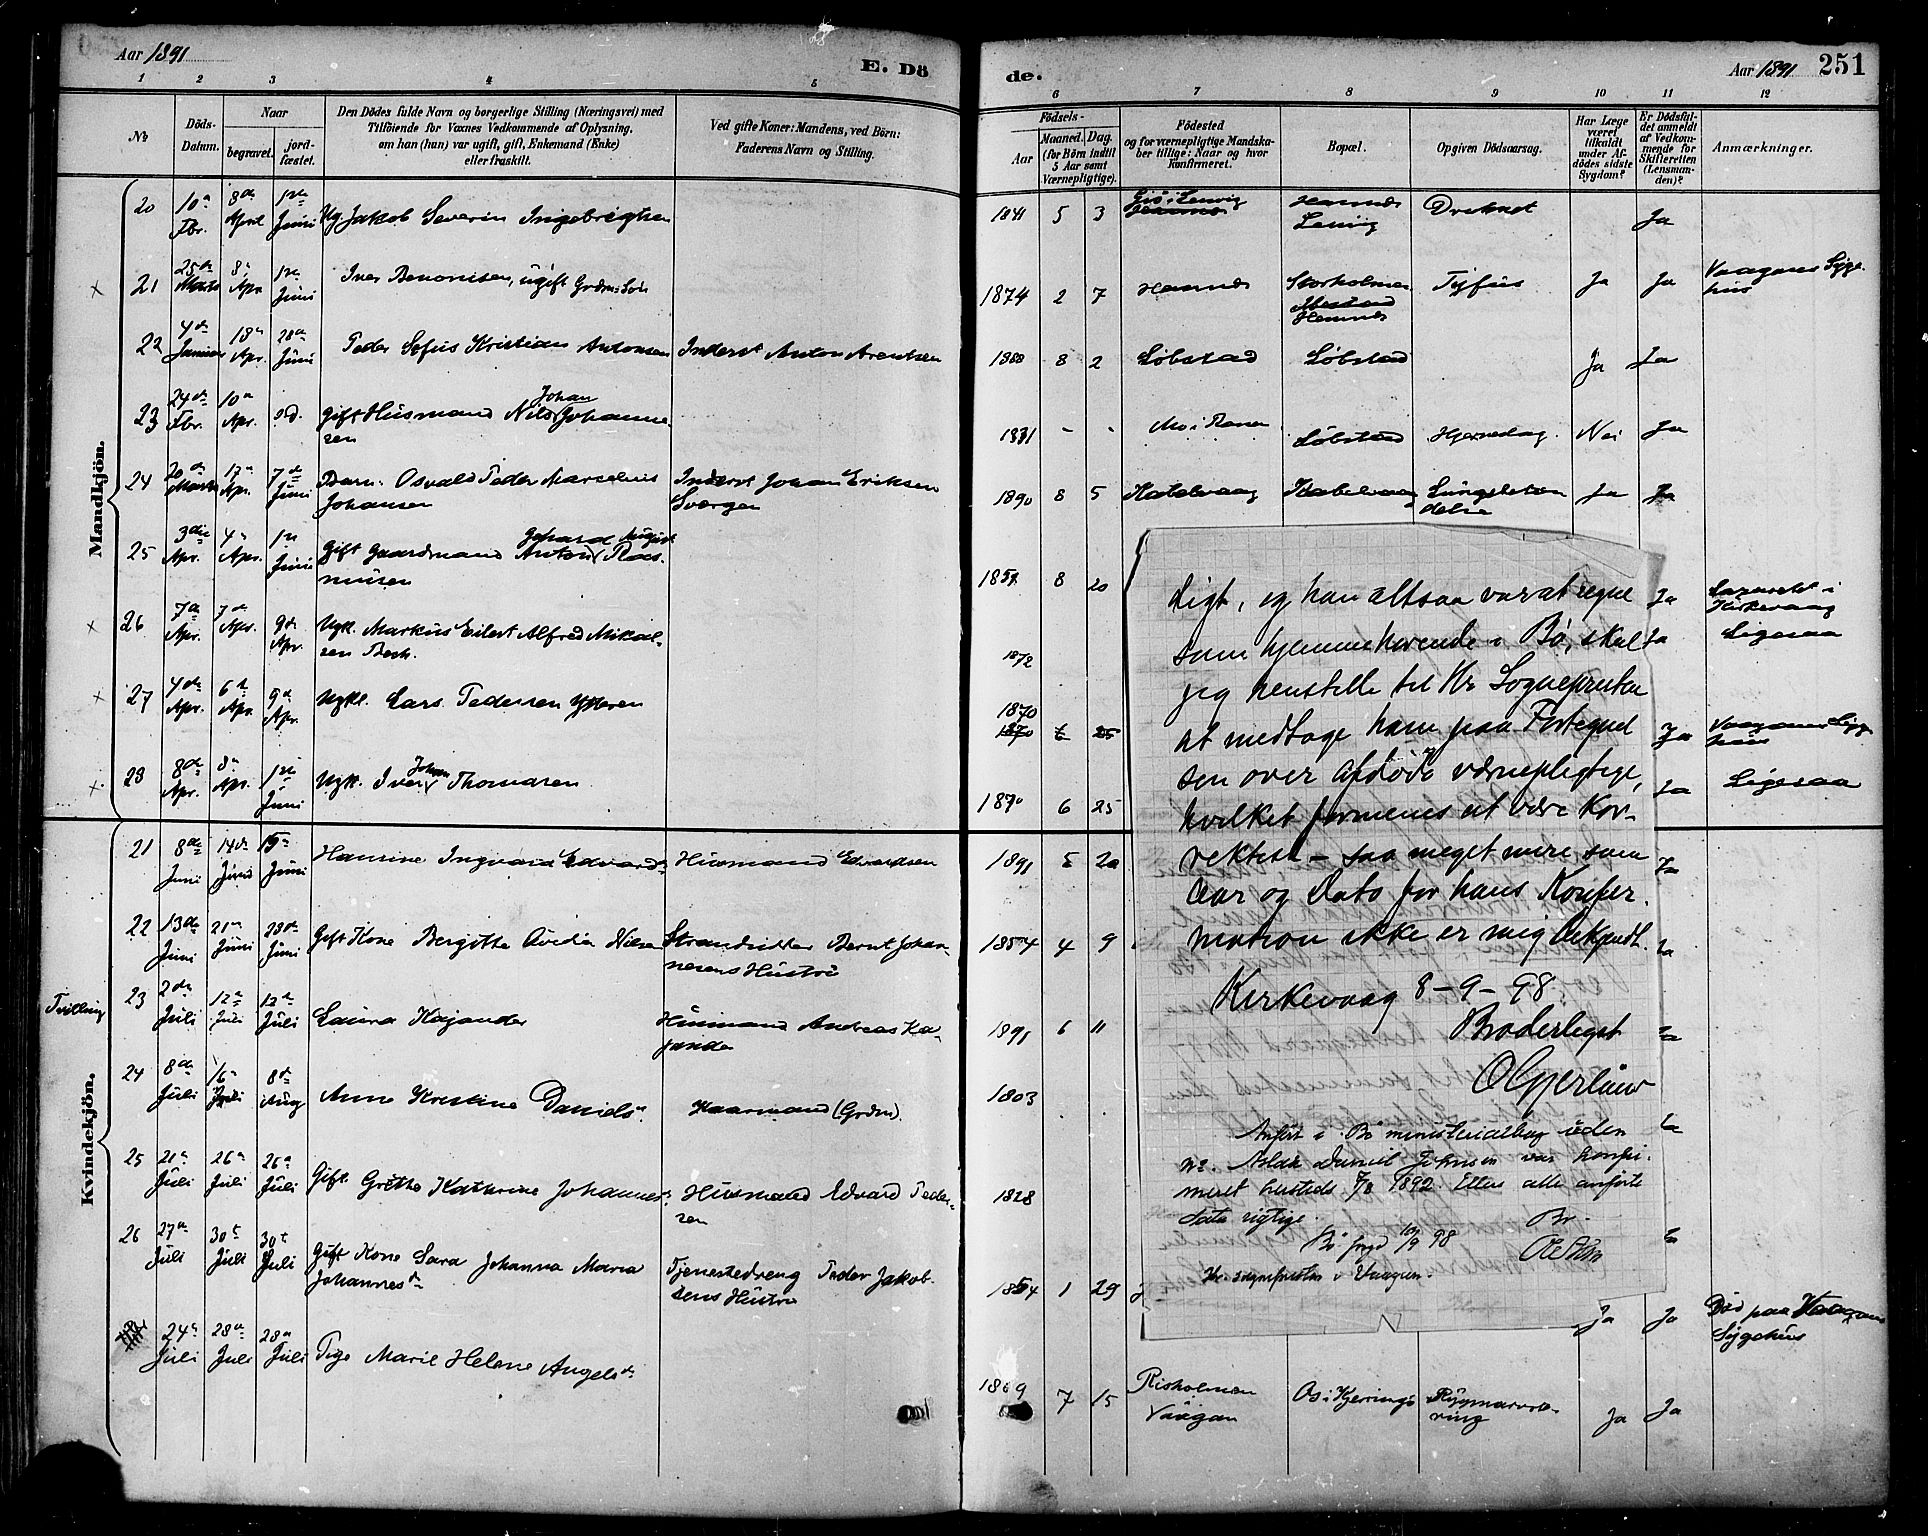 Aar 1891
E. Dö
de.
Aar 1891
251
1 2 3 4 5
6 7 8 9 10 11 12
No
Döds-
Datum.
Naar
begravet.
jord-
fæstet.
Den Dödes fulde Navn og borgerlige Stilling (Næringsvei) med
Tilföiende for Voxnes Vedkommende af Oplysning,
om han (hun) var ugift, gift, Enkemand (Enke)
eller fraskilt.
Ved gifte Koner: Mandens, ved Börn:
Faderens Navn og Stilling.
Födsels-
Aar
Maaned.
Dag.
(for Börn indtil
5 Aar samt
Værnepligtige).
Födested
og for værnepligtige Mandska-
ber tillige: Naar og hvor
konfirmeret.
Bopæl.
Opgiven Dödsaarsag.
Har Læge
været
tilkaldt
under Af-
dödes sidste
Sygdom?
Er Dödsfal-
det anmeldt
af Vedkom-
mende for
Skifteretten
(Lensman-
den)?
Anmærkninger.
Mandkjön.
20 10 Fbr. 8de April 1ste Juni Ug. Jakob Severin Ingebrigtsen 1841 5 3 Hemnes Lenvig Druknet Ja
21 25de Marts 8 Apr. 1ste Juni Iver Benonisen, ugift Grdm. Sön 1874 2 7 Hemnes Storholmen Hemnes Tyfus Ja Ja Vaagans Syge-
hus
22 4de Januar 18 Apr. 28 Juni Peder Sofus Kristian Antonsen Inderst Anton Arentsen 8 2 Löbstad Löbstad Ja Ja
23 24de Fbr. 10 Apr. s.d. Gift Husmand Nils Johan Johanne-
sen 1831 - - Mo i Ranen Löbstad Hjerneslag Nei Ja
24 20de Marts 12 Apr. 7de Juni Barn: Osvald Peder Marselius
Johansen Inderst Johan Eriksen
1890 8 5 Kabelvaag Kabelvaag Lungebetæn
delse Ja Ja
25 3die Apr. 4 Apr. 1ste Juni Gift Gaardmand Anton Gerhard August Ras-
musen 8 20 Ja Lazarettet i
Kirkevaag
26 7de Apr. 7de Apr. 9de Apr. Ugk. Markus Eilert Alfred Mikal-
sen Bech. 1872 Ja Ligesaa
27 4de Apr. 6te Apr. 9de Apr. Ugkl. Lars Pedersen Ytteren 1870 Ja Vaagans Syge
hus
28 8de Apr. 8 Apr. 1ste Juni Ugk. Iver Johan Thomasen 1870 6 25 Ja Ligesaa
Kvindekjön.
21 8de Juni 14de Juni 15 Juni Hansine Ingvara Edvards Husmand Edvardsen 1891 5 20 Ja
22 13de Juni 21 Juni 28de Juni Gift Kone Bergitte Ovidia Nilsen Strandsidder Bernt Johan-
nesens Hustru 4 9 Ja
Tvilling
23 2den Juli 12 Juli 12de Juli Laura Kajander Husmand Andreas Ka-
jander 1891 6 11 Ja
24 8de Juli 16 Juli 8de Aug Anne Kristine Daniels Kaarmand (Grdm). 1803
25 21 Juli 26 Juli 26 Juli Gift. Grethe Kathrine Johannes. Husmand Edvard Peder-
sen 1828
26 27 Juli 30te Juli 30te Juli Gift Kone Sara Johanna Maria
Johannesd. Tjenestedreng Peder Jakob-
sens Hustru 1854 1 29 Ja Ja Död paa Vaagans
Sygehus
24 Juli 28 Juli 28 Juli Pige Marie Helene Angelsd. 1869 7 15 Risholmen
Vaagan Os i Kjerringö Rygmarvstæ-
ring Ja Ja
digt, og han altsaa var at regne
som hjemmehørende i Bö, skal
jeg henstille til Hr. Sognepresten
at medtage ham paa Fortegnel
sen over afdøde værnepligtige,
hvilket formenes at være kor-
rektest – saa meget mere som
Aar og Dato for hans Konfir-
mation ikke er mig bekjendt.
Kirkevaag 8-9-98.
Broderligst
Anfört i Bö ministerialbog uden
no. Daniel Johnsen var konfi-
meret hersteds 7/8 1892. Ellers alle anförte
data rigtige.
Bö prgd 10/9 98
Br.
Hr. sognepresten i Vaagan.